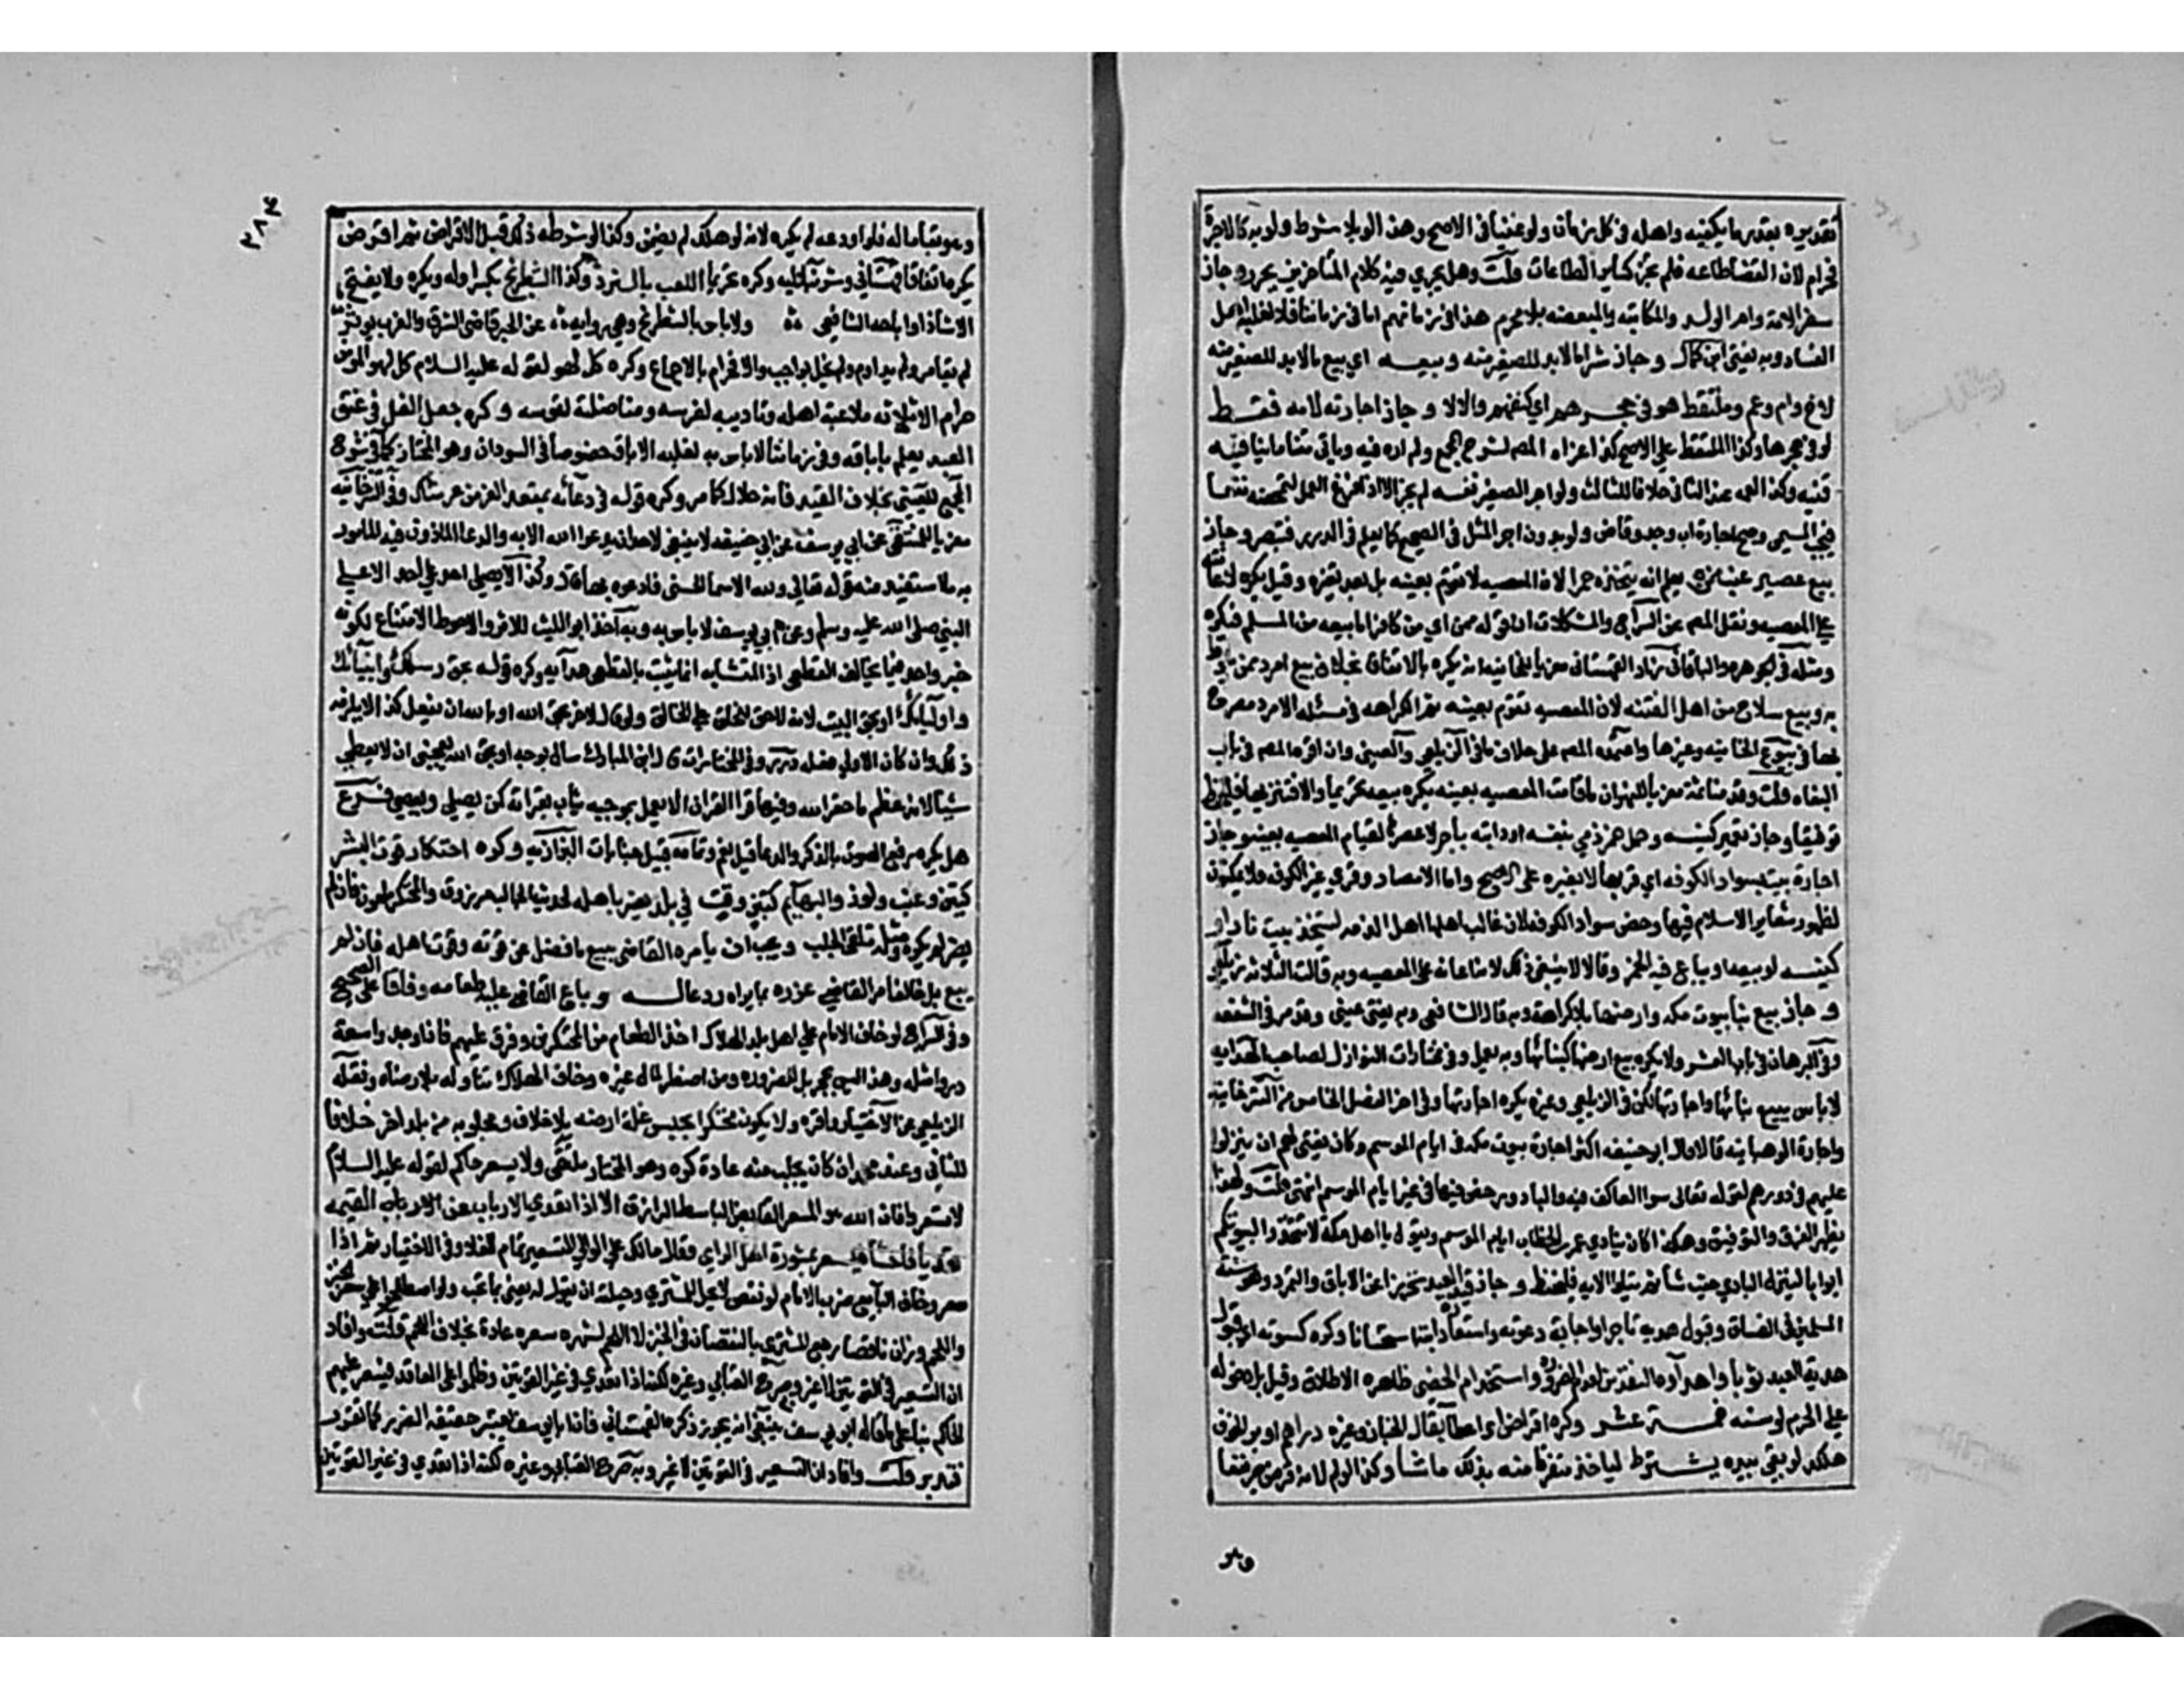 تقديره بقدر ما يكفيه واهله في كل زمان ولو غنيا في الاصح وهذا لو بلا شرط ولو به كالاجرة
فحرام لان القضا طاعه فلم يجز كسائر الطاعات قلت وهل يجري فيه كلام المتاخرين يحرر وجاز
سفر الامة وام الولد والمكاتبه والمبعضه بلا محرم هذا في زمانهم اما في زماننا فلا لغلبة اهل
الفساد وبه يفتى ابن كمال وجاز شرا مالا بد للصغير منه وبيعه اي بيع مالا بد للصغير منه
لاخ وام وعم وملتقط هو في حجرهم اي كنفهم والا لا وجاز اجارته لامه فقط
لو في حجرها وكذا الملتقط على الاصح كذا عزاه المص لشرح المجمع ولم اره فيه وياتي متنا ما ينافيه
فتنبه وكذا لعمه عند الثاني خلافا للثالث ولو اجر الصغير نفسه لم يجز الا اذا فرغ العمل لتمحضه نفعا
فيجب المسمى وصح اجارة اب وجد وقاض ولو بدون اجر المثل في الصحيح كما يعلم في الدرر فتبصر وجاز
بيع عصير عنب ممن يعلم انه يتخذه خمرا لان المعصيه لا تقوم بعينه بل بعد تغيره وقيل يكره لاعانته
على المعصيه ونقل المص عن السراج والمشكلات ان قوله ممن اي من كافر اما بيعه من المسلم فيكره
ومثله في الجوهره والباقاني زاد القهستاني معزيا للخانيه انه يكره بالاتفاق بخلاف بيع امرد ممن يلوط
به وبيع سلاح من اهل الفتنه لان المعصيه تقوم بعينه ثم الكراهه في مسئله الامرد مصرح
بها في بيوع الخانيه وغيرها واعتمده المص على خلاف ما في الزيلعي والعيني وان اقره المص في باب
البغاه قلت وقدمنا ثمة معزيا للنهر ان ما قامت المعصيه بعينه يكره بيعه تحريما والا فتنزيها فليحفظ
توفيقا وجاز تعمير كنيسه وحمل خمر ذمي بنفسه او دابته باجر لا عصرها لقيام المعصيه بعينه وجاز
اجارة بيت بسواد الكوفه اي قراها لا بغيره على الاصح واما الامصار وقرى غير الكوفه فلا يمكنون
لظهور شعاير الاسلام فيها وخص سواد الكوفه لان غالب اهلها اهل الذمه ليتخذ بيت نار او
كنيسه او بيعه او يباع فيه الخمر وقالا لا ينبغي ذلك لانه اعانه على المعصيه وبه قالت الثلاثه زيلعي
وجاز بيع بنا بيوت مكه وارضها بلا كراهة وبه قال الشافعي وبه يفتى عيني وقد مر في الشفعه
وفي البرهان في باب العشر ولا يكره بيع ارضها كبنائها وبه يعمل وفي مختارات النوازل لصاحب الهدايه
لا باس ببيع بنائها واجارتها لكن في الزيلعي وغيره يكره اجارتها وفي اخر الفصل الخامس من التترخانيه
واجارة الوهبانيه قالا قال ابو حنيفه اكره اجارة بيوت مكه في ايام الموسم وكان يفتي لهم ان ينزلوا
عليهم في دورهم لقوله تعالى سوا العاكف فيه والباد ورخص فيها في غير ايام الموسم انتهى قلت وبهذا
يظهر الفرق والتوفيق وهكذا كان ينادي عمر بن الخطاب ايام الموسم ويقول يا اهل مكة لا تتخذوا لبيوتكم
ابوابا لينزل البادي حيث شا ثم يتلو الايه فليحفظ وجاز قيد العبد تحرزا عن الاباق والتمرد وهو سنة
المسلمين في الفساق وقبول هديه تاجرا واجابة دعوته واستعارة دابته استحسانا وكره كسوته اي قبول
هدية العبد ثوبا واهداوه النقدين لعدم الضرورة واستخدام الخصي ظاهره الاطلاق وقيل بل دخوله
على الحرم لو سنه خمسة عشر وكره اقراض اي اعطا بقال كخباز وغيره دراهم او بر لخوف
هلكه لو بقي بيده يشترط لياخذ متفرقا منه بذلك ما شا وكذا لو لم لانه قرض جر نفعا
وهو
٢٨٤
وهو بقا ماله فلو اودعه لم يكره لانه لو هلك لم يضمن وكذا لو شرطه ذلك قبل الاقراض ثم اقرضه
يكره اتفاقا قهستاني وشرنبلاليه وكره تحريما اللعب بالنرد وكذا الشطرنج بكسر اوله ويكره ولا يفتح
الا شاذا واباحه الشافعي ولا باس بالشطرنج وهي روايه عن الحبر قاضي الشرق والغرب يوثر
لم يقامر ولم يداوم ولم يخل بواجب والا فحرام بالاجماع وكره كل لهو لقوله عليه السلام كل لهو المومن
حرام الا ثلاثه ملاعبة اهله وتاديبه لفرسه ومناضلة لقوسه وكره جعل الغل في عنق
العبد يعلم باباقه وفي زماننا لا باس به لغلبه الاباق خصوصا في السودان وهو المختار كما في شرح
المجمع للعيني بخلاف القيد فانه حلال كما مر وكره قوله في دعائه بمقعد العز من عرشك وفي التترخانيه
معزيا للمنتقى عن ابي يوسف عن ابي حنيفه لا ينبغي لاحد ان يدعو الله الا به والدعا الماذون فيه المامور
به ما استفيد منه قوله تعالى ولله الاسما الحسنى فادعوه بها قال وكذا لا يصلي احد على احد الا على
النبي صلى الله عليه وسلم وعن ابي يوسف لا باس به وبه اخذ ابو الليث للاثر والاحوط الامتناع لكونه
خبر واحد فيما يخالف القطعي اذ المتشابه انما يثبت بالقطعي هدايه وكره قوله بحق رسلك وانبيائك
واوليائك او بحق البيت لانه لا حق للخلق على الخالق ولو قال لاخر بحق الله او بالله ان تفعل كذا لا يلزمه
ذلك وان كان الاولى فعله درر وفي المختارات قال ابن المبارك سال بوجه الله او بحق الله يعجبني ان لا يعطي
شيئا لانه عظم ما حقر الله وفيها قرا القران الا يعمل بموجبه يثاب بقراته كمن يصلي ويعصي فرع
هل يكره رفع الصوت بالذكر والدعا قيل نعم وتمامه قبيل جنايات البزازيه وكره احتكار قوت البشر
كتبن وعنب ولوز والبهايم كتبن وقت في بلد يضر باهله لحديث الجالب مرزوق والمحتكر ملعون فان لم
يضر لم يكره ومثله تلقي الجلب ويجب ان يامره القاضي ببيع ما فضل عن قوته وقوت اهله فان لم
يبع بل خالف امر القاضي عزره بما يراه ردعا له وباع القاضي عليه طعامه وفاقا على الصحيح
وفي السراج لو خاف الامام على اهل بلد الهلاك اخذ الطعام من المحتكرين وفرق عليهم فاذا وجدوا سعة
ردوا مثله وهذا ليس بحجر بل للضروره ومن اضطر لمال غيره وخاف الهلاك تناوله بلا رضاه ونقله
الزيلعي عن الاختيار واقره ولا يكون محتكرا بحبس غلة ارضه بلا خلاف ومجلوبه من بلد اخر خلافا
للثاني وعند محمد ان كان يجلب منه عادة كره وهو المختار ملتقى ولا يسعر حاكم لقوله عليه السلام
لا تسعروا فان الله هو المسعر القابض الباسط الرازق الا اذا تعدى الارباب عن القيمه
تعديا فاحشا فيسعر بمشورة اهل الراي وقال مالك على الوالي التسعير عام الغلا وفي الاختيار ثم اذا
سعر وخاف البايع ضرب الامام لو نقص لا يحل للمشتري وحيلته ان يقول له بعني بما تحب ولو اصطلحوا على سعر الخبز
واللحم ووزن ناقصا رجع المشتري بالنقصان في الخبز لا اللحم لشهره سعره عادة بخلاف اللحم قلت وافاد
ان التسعير في القوتين لا غير وبه صرح العتابي وغيره لكنه اذا تعدى في غير القوتين وظلموا على العامه فيسعر عليهم
الحاكم بنا على ما قاله ابو يوسف ينبغي انه يجوز ذكره القهستاني فان ابا يوسف يعتبر حقيقه الضرر كما تقرر
فتدبر قلت وافاد ان التسعير في القوتين لا غير وبه صرح العتابي وغيره لكنه اذا تعدى في غير القوتين